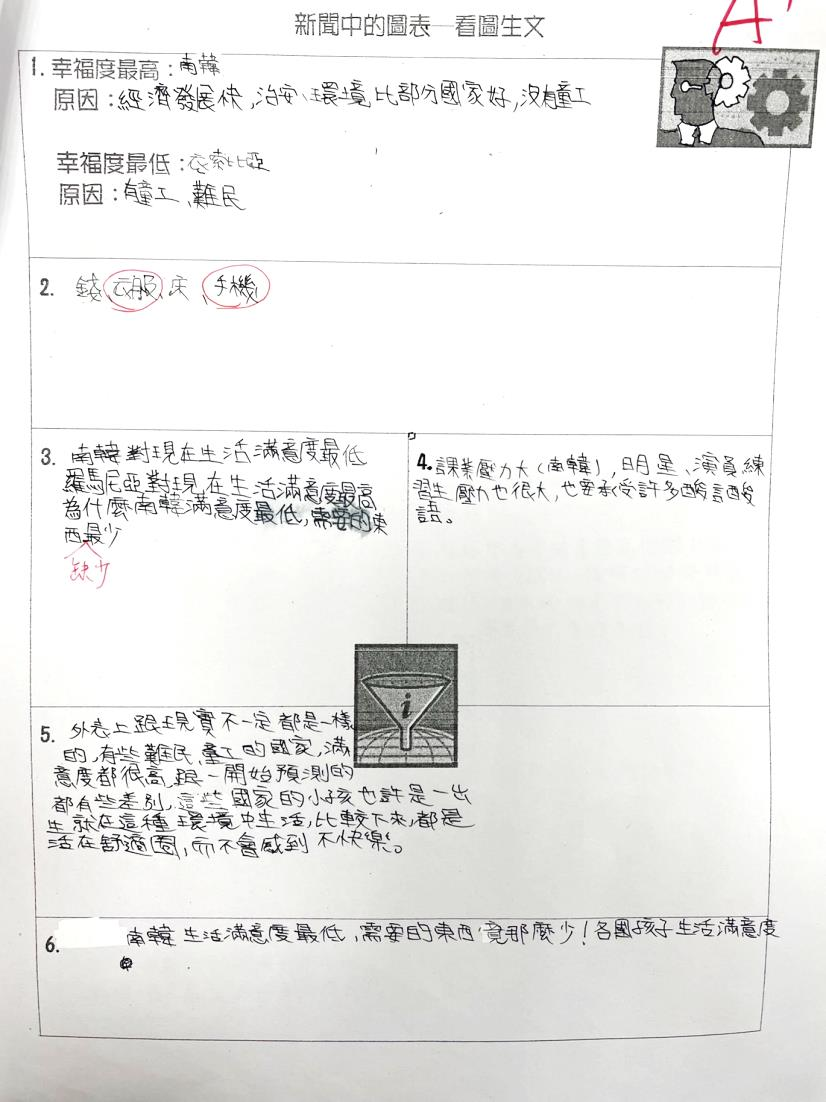 新聞中的圖表—看圖生文
A+
1. 幸福度最高：南韓
原因：經濟發展快，治安、環境比部分國家好，沒有童工
幸福度最低：衣索比亞
原因：有童工、難民
2. 錢、衣服、床、手機
3. 南韓對現在生活滿意度最低
羅馬尼亞對現在生活滿意度最高
為什麼南韓滿意度最低，需要的東
西最少
缺少
4. 課業壓力大(南韓)，明星、演員練
習生壓力也很大，也要承受許多酸言酸
語。
i
5. 外表上跟現實不一定都是一樣
的，有些難民、童工的國家，滿
意度都很高，跟一開始預測的
都有些差別，這些國家的小孩也許是一出
生就在這種環境中生活，比較下來，都是
活在舒適圈，而不會感到不快樂。
6. 南韓生活滿意度最低，需要的東西竟那麼少！各國孩子生活滿意度